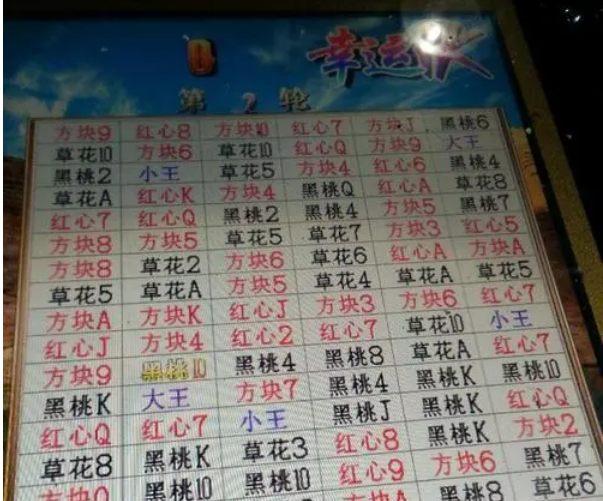 幸运
第 2 轮
方块9 红心8 方块10 红心7 方块J 黑桃6
草花10 方块6 草花10 红心Q 方块9 大王
黑桃2 小王 草花5 方块4 红心6 黑桃4
草花A 红心K 方块4 黑桃Q 红心A 草花8
红心7 红心Q 黑桃2 黑桃4 方块5 黑桃7
方块8 方块5 草花5 草花7 方块3 红心5
方块8 草花2 方块6 草花6 红心A 方块A
草花5 草花A 方块5 草花4 草花A 草花5
方块A 方块K 红心J 方块3 方块6 红心7
红心J 方块4 红心2 红心7 草花10 小王
方块9 黑桃10 黑桃4 黑桃8 草花A 红心7
黑桃K 大王 方块7 黑桃4 黑桃K 黑桃10
红心Q 红心7 小王 黑桃J 黑桃K 红心Q
草花8 黑桃K 草花3 红心8 黑桃K 方块2
方块Q 黑桃10 黑桃10 红心9 方块6 黑桃7
方块A 黑桃8 草花6